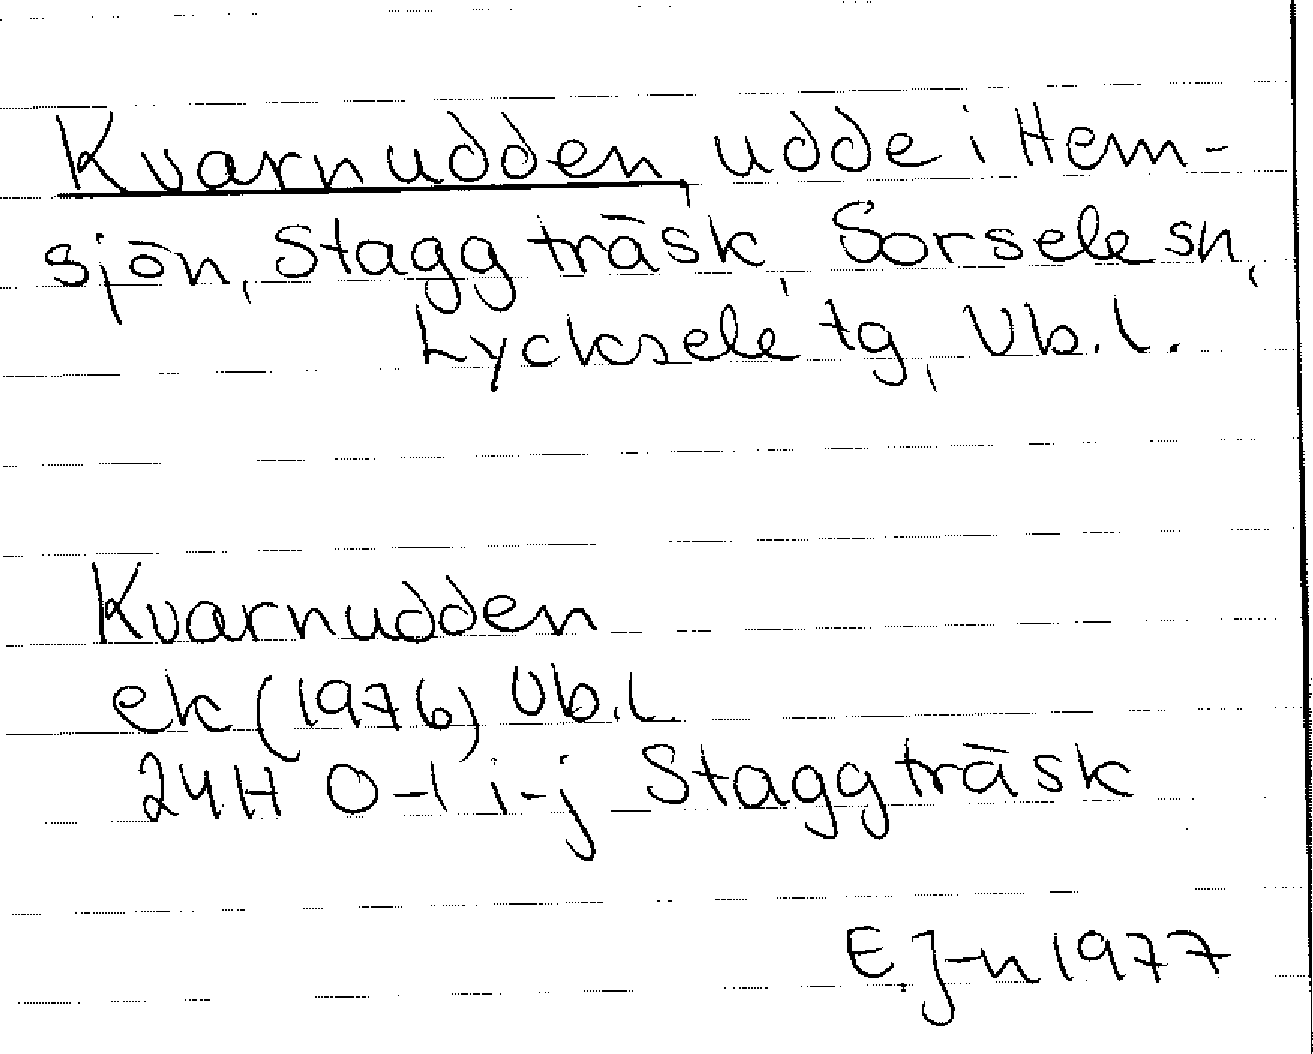 Kvarnudden, udde i Hem-
sjön, Staggträsk, Sorsele sn,
Lycksele tg, Vb.l.
Kvarnudden
ek (1976) Vb.l.
24H 0-1 i-j Staggträsk
E. J-n 1977